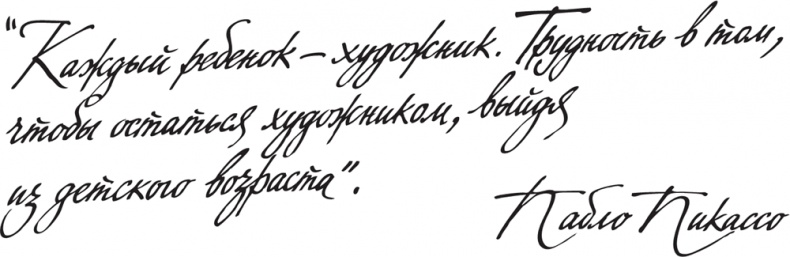 “Каждый ребенок – художник. Трудность в том,
чтобы остаться художником, выйдя
из детского возраста”.
Пабло Пикассо